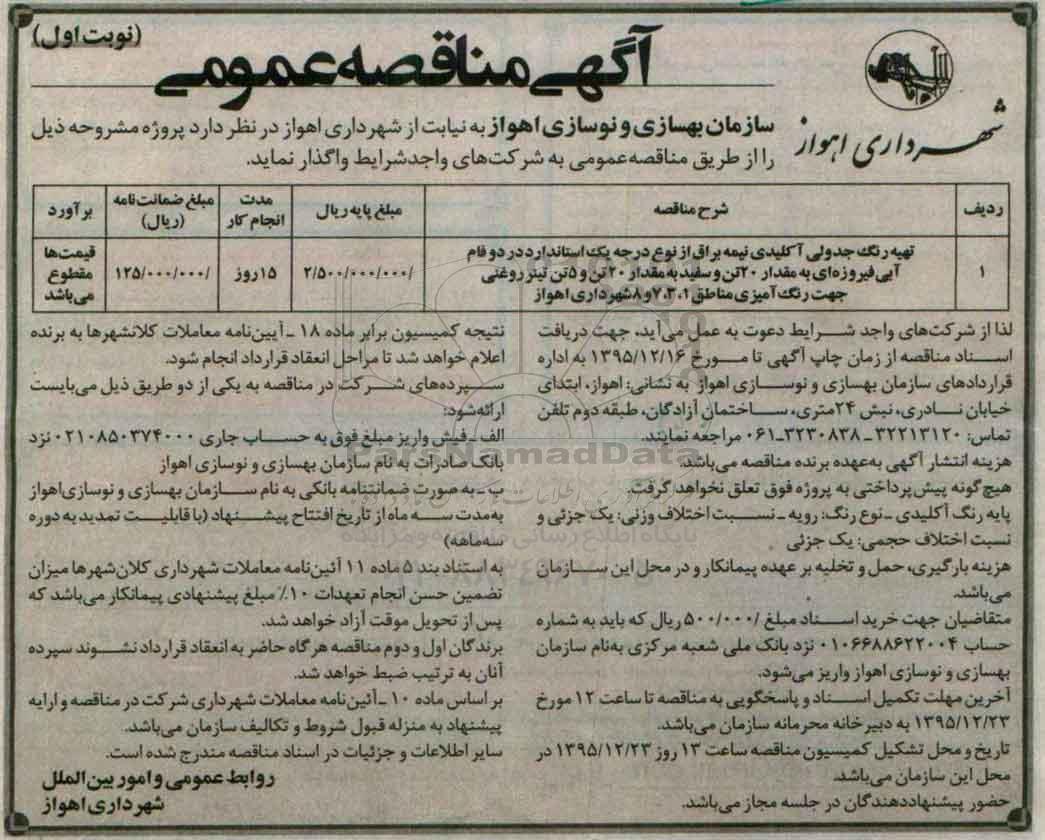 (نوبت اول)
آگهی مناقصه عمومی
شهرداری اهواز
سازمان بهسازی و نوسازی اهواز به نیابت از شهرداری اهواز در نظر دارد پروژه مشروحه ذیل
را از طریق مناقصه عمومی به شرکت‌های واجد شرایط واگذار نماید.
ردیف شرح مناقصه مبلغ پایه ریال مدت انجام کار مبلغ ضمانت نامه (ریال) برآورد
۱ تهیه رنگ جدولی آکلیدی نیمه براق از نوع درجه یک استاندارد در دو فام
آبی فیروزه‌ای به مقدار ۲۰ تن و سفید به مقدار ۲۰ تن و ۵ تن تینر روغنی
جهت رنگ آمیزی مناطق ۱، ۳، ۷ و ۸ شهرداری اهواز
۲/۵۰۰/۰۰۰/۰۰۰/
۱۵ روز
۱۲۵/۰۰۰/۰۰۰/
قیمت‌ها
مقطوع
می‌باشد
لذا از شرکت‌های واجد شرایط دعوت به عمل می‌آید، جهت دریافت
اسناد مناقصه از زمان چاپ آگهی تا مورخ ۱۳۹۵/۱۲/۱۶ به اداره
قراردادهای سازمان بهسازی و نوسازی اهواز به نشانی: اهواز، ابتدای
خیابان نادری، نبش ۲۴ متری، ساختمان آزادگان، طبقه دوم تلفن
تماس: ۳۲۲۱۳۱۲۰ ـ ۳۲۳۰۸۳۸ـ۰۶۱ مراجعه نمایند.
هزینه انتشار آگهی به‌عهده برنده مناقصه می‌باشد.
هیچ گونه پیش پرداختی به پروژه فوق تعلق نخواهد گرفت.
پایه رنگ آکلیدی ـ نوع رنگ: رویه ـ نسبت اختلاف وزنی: یک جزئی و
نسبت اختلاف حجمی: یک جزئی
هزینه بارگیری، حمل و تخلیه بر عهده پیمانکار و در محل این سازمان
می‌باشد.
متقاضیان جهت خرید اسناد مبلغ /۵۰۰/۰۰۰ ریال که باید به شماره
حساب ۰۱۰۶۶۸۸۶۲۲۰۰۴ نزد بانک ملی شعبه مرکزی به‌نام سازمان
بهسازی و نوسازی اهواز واریز می‌شود.
آخرین مهلت تکمیل اسناد و پاسخگویی به مناقصه تا ساعت ۱۲ مورخ
۱۳۹۵/۱۲/۲۳ به دبیرخانه محرمانه سازمان می‌باشد.
تاریخ و محل تشکیل کمیسیون مناقصه ساعت ۱۳ روز ۱۳۹۵/۱۲/۲۳ در
محل این سازمان می‌باشد.
حضور پیشنهاددهندگان در جلسه مجاز می‌باشد.
نتیجه کمیسیون برابر ماده ۱۸ ـ آیین‌نامه معاملات کلانشهرها به برنده
اعلام خواهد شد تا مراحل انعقاد قرارداد انجام شود.
سپرده‌های شرکت در مناقصه به یکی از دو طریق ذیل می‌بایست
ارائه شود:
الف ـ فیش واریز مبلغ فوق به حساب جاری ۰۲۱۰۸۵۰۳۷۴۰۰۰ نزد
بانک صادرات به نام سازمان بهسازی و نوسازی اهواز
ب ـ به صورت ضمانتنامه بانکی به نام سازمان بهسازی و نوسازی اهواز
به‌مدت سه ماه از تاریخ افتتاح پیشنهاد (با قابلیت تمدید به دوره
سه ماهه)
به استناد بند ۵ ماده ۱۱ آئین‌نامه معاملات شهرداری کلان‌شهرها میزان
تضمین حسن انجام تعهدات ۱۰٪ مبلغ پیشنهادی پیمانکار می‌باشد که
پس از تحویل موقت آزاد خواهد شد.
برندگان اول و دوم مناقصه هر گاه حاضر به انعقاد قرارداد نشوند سپرده
آنان به ترتیب ضبط خواهد شد.
بر اساس ماده ۱۰ ـ آئین‌نامه معاملات شهرداری شرکت در مناقصه و ارایه
پیشنهاد به منزله قبول شروط و تکالیف سازمان می‌باشد.
سایر اطلاعات و جزئیات در اسناد مناقصه مندرج شده است.
روابط عمومی و امور بین الملل
شهرداری اهواز
ParsNamadData
پایگاه اطلاع رسانی مناقصه و مزایده